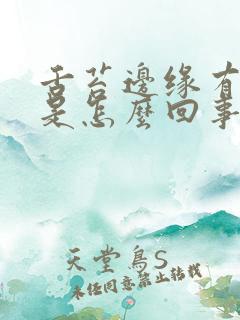 舌苔邊缘有
是怎麼回事
天堂鳥S
未经同意禁止转载